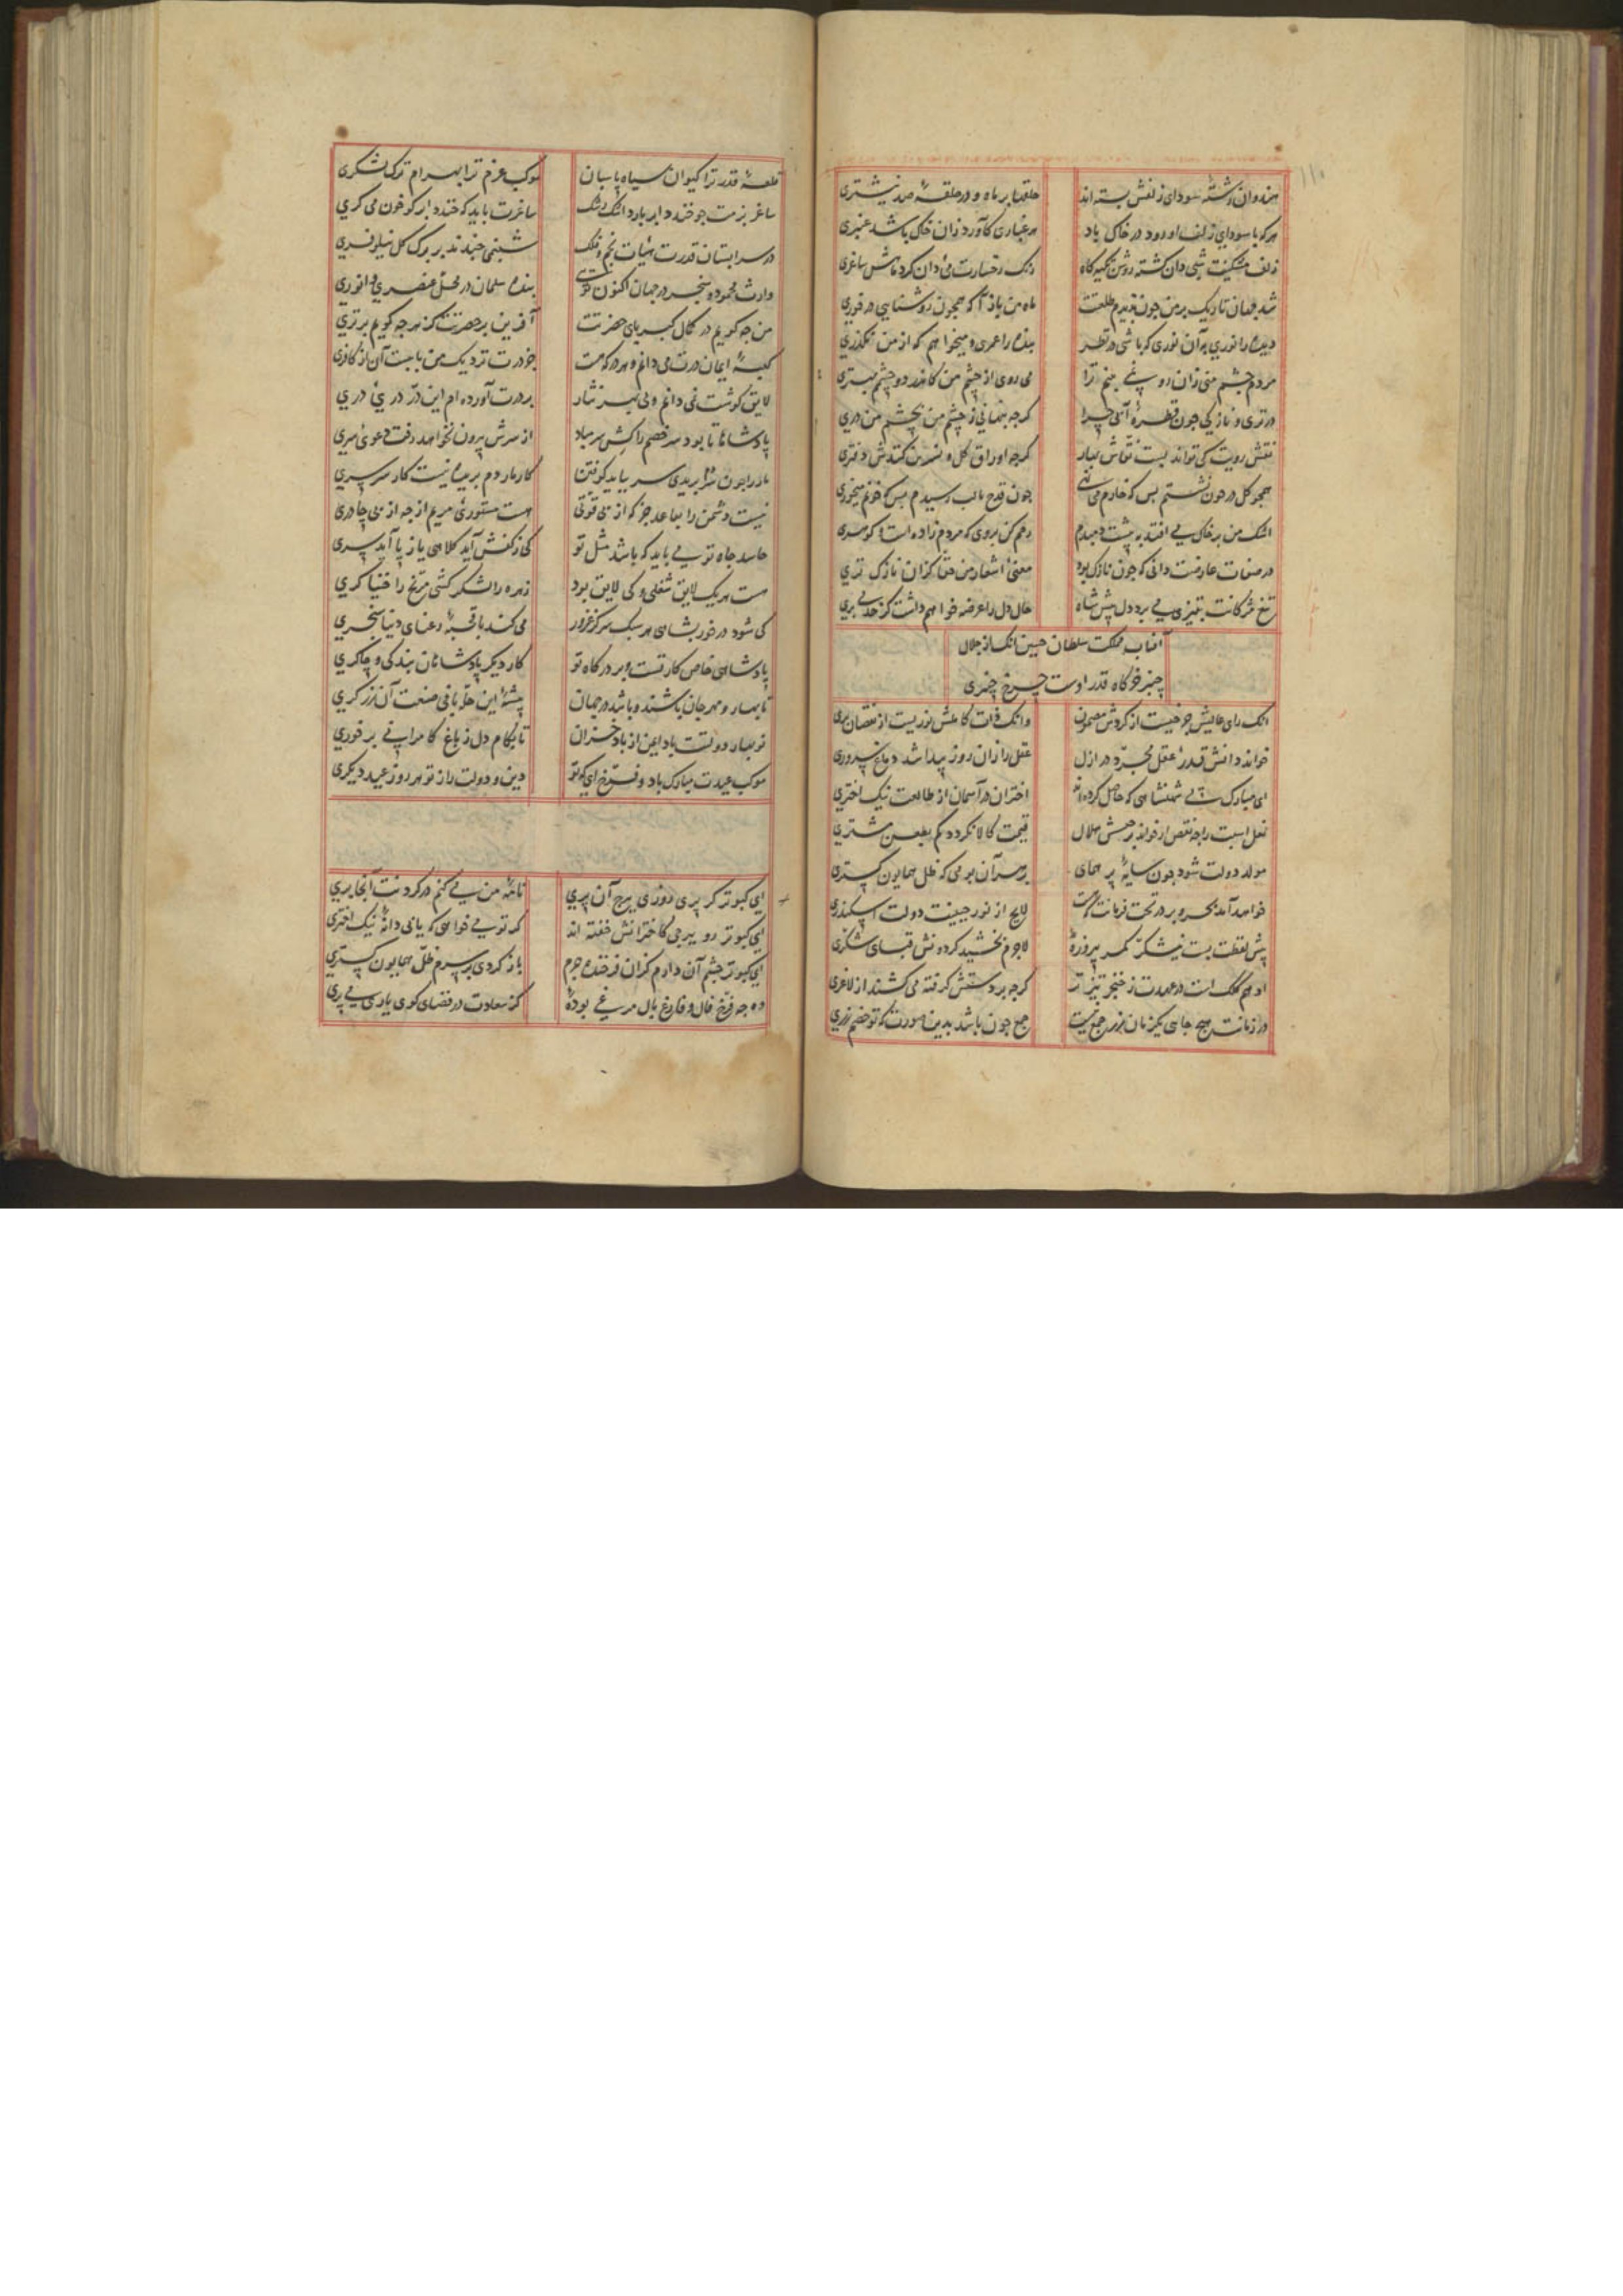 هندوان رشتهٔ سودای زلفش بسته اند حلقها بر ماه و در حلقهٔ صد مشتری
هرکه با سودای زلف او رود در خاک باد هر غباری کآورد زان خاک باشد عنبری
زلف مشکینت شبی دان کشته روشن تکیه گاه رنک رخسارت می دان کرد ساغری
شد جهان تاریک بر من چون ندیدم طلعتت ماه من باز آ که همچون روشنایی در خوری
دیده را نوری به آن نوری که باشی در نظر بنده را عمری و میخواهم که از من نکذری
مردم چشم منی زان رو نمی بینم ترا می روی از چشم من کاندر دو چشم بهتری
در تری و نازکی چون قطرهٔ آبی چرا کرچه پنهانی ز چشم من بچشم من دری
نقش رویت کی تواند بست نقاش بهار کرچه اوراق کل و نسرین کندش دفتری
همچو کل در خون نشستم بس که خارم می نهی چون قدح با لب رسیدم بس که خونم میخوری
اشک من بر خاک می افتد به پیشت دمبدم رحم کن بروی که مردم زاده است و کوهری
در صفات عارضت دانی که چون نازک بود معنئ اشعار من حقا کزان نازک تری
تیغ مژکانت بتیزی می برد دل پیش شاه حال دل را عرضه خواهم داشت کز حد می بری
آفتاب مملکت سلطان حسین آنک از جلال
چنبر خرکاه قدر اوست چرخ چنبری
آنک رای عالیش چرخیست از کردش مصون وانک ذات کاملش نوریست از نقصان بری
خواند دانش قدرهٔ عقل مجرد در ازل عقل را زان روز پیدا شد دماغ سروری
ای مبارک پی شهنشاهی که حاصل کرده اند اختران در آسمان از طالعت نیک اختری
نعل اسبت را چه نقص ار خواند برجیسش هلال قیمت کالا نکردد کم بطعن مشتری
مولد دولت شود چون سایهٔ پر همای بر سر آن بومی که ظل همایون کستری
خواهد آمد بحر و بر در تحت فرمانت که هست لایح از نور جبینت دولت اسکندری
پیش لفظت بست نیشکر کمر پیروزهٔ لاجرم بخشید کردونش قبای شکری
او هم کلک است در عهدت ز خنجر تیزتر کرچه بر دستش کرفته می کشند از لاغری
در زمانت هیچ جایی یکزمان زر جمع نیست جمع چون باشد بدین صورت که تو خصم زری
قلعهٔ قدر ترا کیوان سیاه پاسبان موکب عزم ترا بهرام ترک لشکری
ساغر بزمت چو خندد ابر بارد اشک رشک ساغرت باید که خندد ابر کو خون می کری
در سرابستان قدرت هیأت نجم و فلک شبنمی چندند بر برک کل نیلوفری
وارث محمود و سنجر در جهان اکنون توئی بنده سلمان در محل عنصری و انوری
من چه کویم در کمال کبریای حضرتت آفرین بر حضرتت کز هرچه کویم برتری
کعبهٔ ایمان درت می دانم و هر درکه هست جز درت نزدیک من بابیست آن از کافری
لایق کوشت نمی دانم ولی بهر نثار بر درت آورده ام این درّ دریئ دری
پادشاها تا بود سر خصم را کش سر مباد از سرش بیرون نخواهد رفت دعوئ سری
مار را چون سر بریدی سر بباید کوفتن کار مار دم بریده نیست کار سرسری
نیست دشمن را بساعد جز که از بی قوتی هست مستورئ مریم از چه از بی چادری
حاسد جاه تو می باید که باشد مثل تو کی ز کفش آید کلاهی یا ز پا آید سری
هست هر یک لایق شغلی و کی لایق بود زهره را لشکر کشی مریخ را خنیاکری
کی شود در خور بشاهی هر سبک سر کز غرور می کند با قحبهٔ رعنای دنیا سنجری
پادشاهی خاص کار تست و بر درکاه تو کار دیکر پادشاهان بندکی و چاکری
تا بهار و مهرجان باشند و باشد در جهان پیشهٔ این حله بافی صنعت آن زرکری
نوبهار دولتت باد ایمن از باد خزان تا بکام دل ز باغ کامرانی بر خوری
موکب عیدت مبارک باد و فرخ ای که تو دین و دولت را ز تو هر روز عید دیکری
ای کبوتر کر پری روزی ببرج آن پری نامهٔ من می کنم در کردنت آنجا بری
ای کبوتر رو ببرجی کاخترانش خفته اند کر تو می خواهی که یابی دانهٔ نیک اختری
ای کبوتر چشم آن دارم کزان فرخنده جرم باز کردی بر سرم ظل همایون کستری
وه چه فرخ فال و فارغ بال مرغی بودهٔ کز سعادت در فضای کوی یاری می پری